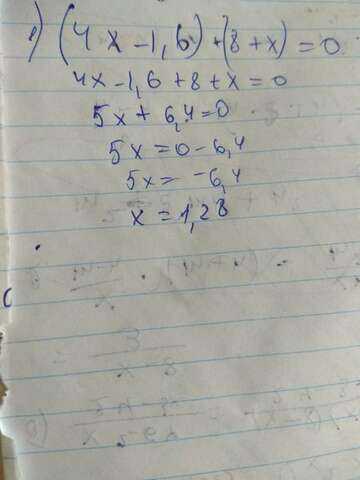 1) (4x-1,6)+(8+x)=0
4x-1,6+8+x=0
5x+6,4=0
5x=0-6,4
5x=-6,4
x=1,28